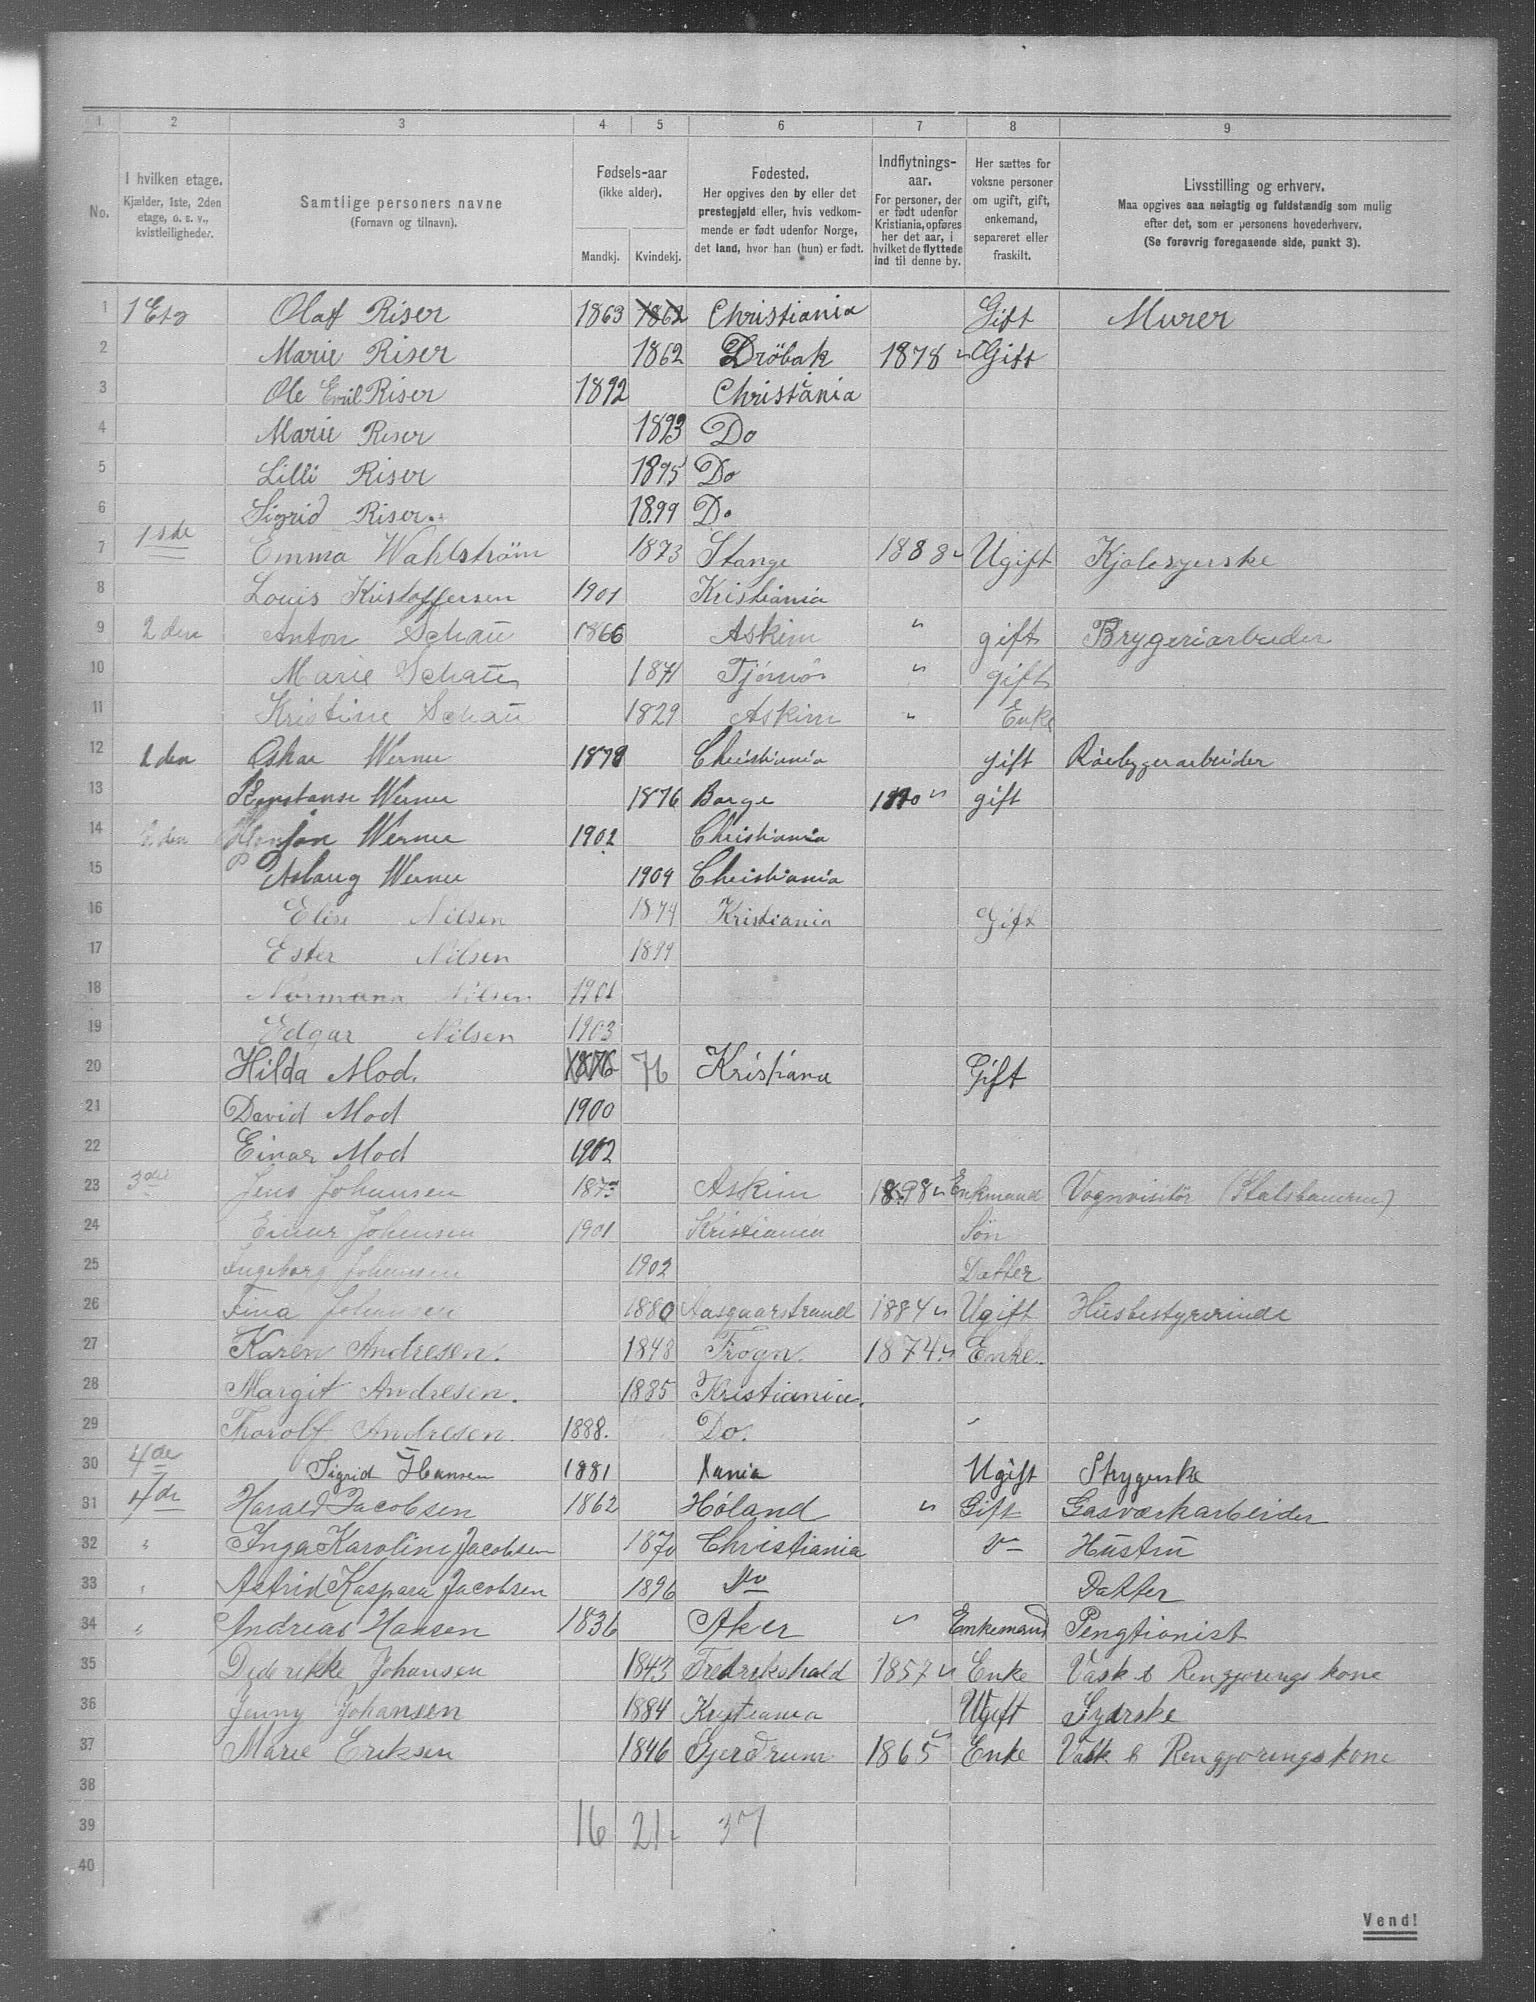 1 2 3 4 5 6 7 8 9
No.
I hvilken etage.
Kjælder, 1ste, 2den
etage, o. s. v.,
kvistleiligheder.
Samtlige personers navne
(Fornavn og tilnavn).
Fødsels-aar
(ikke alder).
Mandkj. Kvindekj.
Fødested.
Her opgives den by eller det
prestegjeld eller, hvis vedkom-
mende er født udenfor Norge,
det land, hvor han (hun) er født.
Indflytnings-
aar.
For personer, der
er født udenfor
Kristiania, opføres
her det aar, i
hvilket de flyttede
ind til denne by.
Her sættes for
voksne personer
om ugift, gift,
enkemand,
separeret eller
fraskilt.
Livsstilling og erhverv.
Maa opgives saa nøiagtig og fuldstændig som mulig
efter det, som er personens hovederhverv.
(Se forøvrig foregaaende side, punkt 3).
1 1 Etg Olaf Riser 1863 1862 Christiania Gift Murer
2 Marie Riser 1862 Dröbak 1878 Gift
3 Ole Emil Riser 1892 Christiania
4 Marie Riser 1893 Do
5 Lilli Riser 1895 Do
6 Sigrid Riser. 1899 Do
7 1ste Emma Wahlström 1873 Stange 1888 Ugift Kjolesyerske
8 Louis Kristoffersen 1901 Kristiania
9 2den Anton Schau 1866 Askim " gift Brygeriarbeider
10 Marie Schau 1871 Tjömö " gift
11 Kristine Schau 1829 Askim " Enke
12 2den Oskar Werner 1878 Christiania gift
13 Konstanse Werner 1876 Borge gift
14 2den Werner 1902 Christiania
15 Aslaug Werner 1904 Christiania
16 Elise Nilsen 1874 Kristiania Gift
17 Ester Nilsen 1899
18 Normann Nilsen 1901
19 Edgar Nilsen 1903
20 Hilda Mod. 1876 76 Kristiania Gift
21 David Mod 1900
22 Einar Mod 1902
23 3die Jens Johansen Askim 1898 Enkmand Vognvisitör (Statsbanerne)
24 Einar Johansen 1901 Kristiania Sön
25 Ingeborg Johansen 1902 Datter
26 Tina Johansen 1880 Aasgaarstrand 1884 Ugift Husbestyrerinde
27 Karen Andresen. 1848 Frogn. 1874 Enke.
28 Margit Andresen. 1885 Kristiania.
29 Thorolf Andresen. 1888. Do.
30 4de Sigrid Hansen 1881 Xania Ugift Strygerske
31 4de Harald Jacobsen 1862 Höland " Gift Gasværkarbeider
32 " Inga Karoline Jacobsen 1870 Christiania " Hustru
33 " Astrid Kaspara Jacobsen 1896 Do Datter
34 " Andreas Hansen 1836 Aker " Enkemand Pengtionist
35 Diderikke Johansen 1843 Fredrikshald 1857 Enke Vask & Rengjørings kone
36 Jenny Johansen 1884 Kristiania Ugift Syerske
37 Marie Eriksen 1846 Gjerdrum 1865 Enke Vask & Rengjørings kone
38
39 16 21 37
40
Vend!